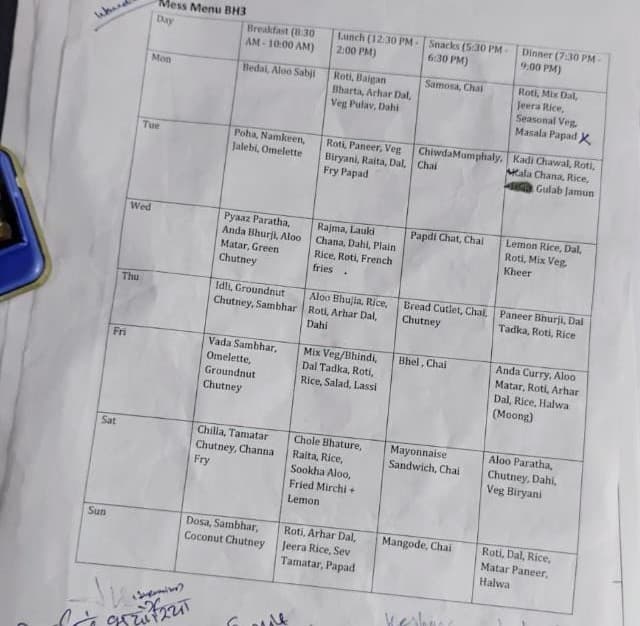 Mess Menu BH3
Day
Breakfast (8:30
AM - 10:00 AM)
Lunch (12:30 PM -
2:00 PM)
Snacks (5:30 PM -
6:30 PM)
Dinner (7:30 PM -
9:00 PM)
Mon
Bedai, Aloo Sabji
Roti, Baigan
Bharta, Arhar Dal,
Veg Pulav, Dahi
Samosa, Chai
Roti, Mix Dal,
Jeera Rice,
Seasonal Veg,
Masala Papad X
Tue
Poha, Namkeen,
Jalebi, Omelette
Roti, Paneer, Veg
Biryani, Raita, Dal,
Fry Papad
ChiwdaMumphaly,
Chai
Kadi Chawal, Roti,
Kala Chana, Rice,
Gulab Jamun
Wed
Pyaaz Paratha,
Anda Bhurji, Aloo
Matar, Green
Chutney
Rajma, Lauki
Chana, Dahi, Plain
Rice, Roti, French
fries
Papdi Chat, Chai
Lemon Rice, Dal,
Roti, Mix Veg,
Kheer
Thu
Idli, Groundnut
Chutney, Sambhar
Aloo Bhujia, Rice,
Roti, Arhar Dal,
Dahi
Bread Cutlet, Chai,
Chutney
Paneer Bhurji, Dal
Tadka, Roti, Rice
Fri
Vada Sambhar,
Omelette,
Groundnut
Chutney
Mix Veg/Bhindi,
Dal Tadka, Roti,
Rice, Salad, Lassi
Bhel , Chai
Anda Curry, Aloo
Matar, Roti, Arhar
Dal, Rice, Halwa
(Moong)
Sat
Chilla, Tamatar
Chutney, Channa
Fry
Chole Bhature,
Raita, Rice,
Sookha Aloo,
Fried Mirchi +
Lemon
Mayonnaise
Sandwich, Chai
Aloo Paratha,
Chutney, Dahi,
Veg Biryani
Sun
Dosa, Sambhar,
Coconut Chutney
Roti, Arhar Dal,
Jeera Rice, Sev
Tamatar, Papad
Mangode, Chai
Roti, Dal, Rice,
Matar Paneer,
Halwa